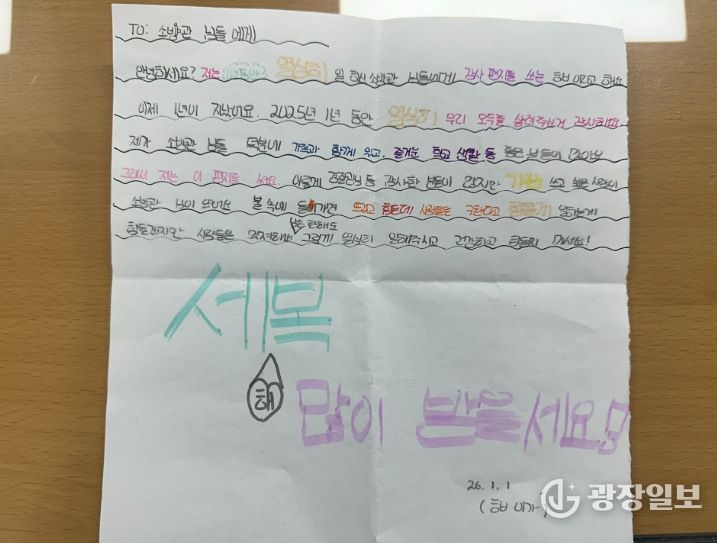 TO: 소방관 님들에게
안녕하세요? 저는 열심히 일 하신 소방관 님들에게 감사 편지를 쓰는 라고 해요.
이제 1년이 지났어요. 2025년 1년 동안 열심히 우리 모두를 살려주셔서 감사해요.
제가 소방관 님들 덕분에 가족과 함께 있고, 즐거운 학교 생활 등 좋은 날들이 많아요
그래서 저는 이 편지를 써요. 이렇게 경찰관님 등 감사한 분들이 많지만 가장 쓰고 싶은 사람이
소방관 님이 뜨거운 불 속에 들어가면 뜨겁고 힘든데 사람들을 구한다고 힘들게 일하는게
힘들겠지만 사람들은 걱정해서 그렇게 열심히 일해주시고 건강하고 다치지 마세요!
은 편해도
세복
해
많이 받을세요!
26. 1. 1
(
광장일보